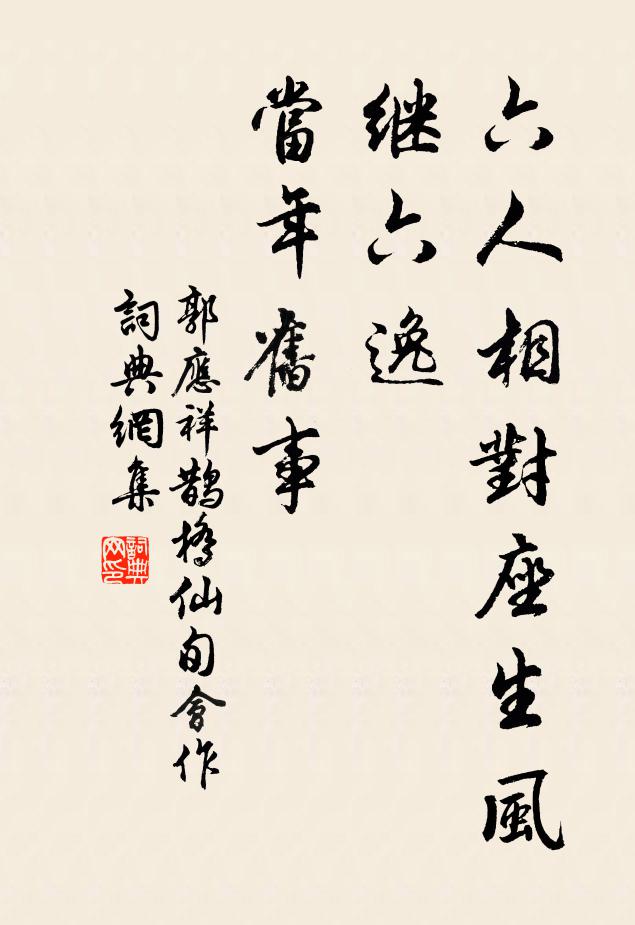 六人相對座生風
继六逸
當年舊事
郭應祥鵲橋仙旬會作
詞典網集
詞典网印